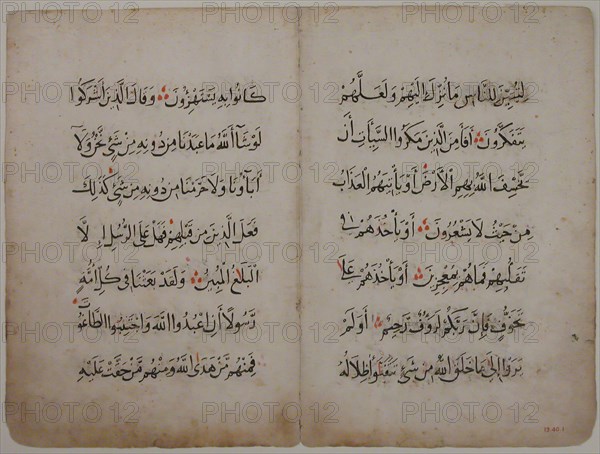 لتبين للناس ما نزل اليهم ولعلهم
يتفكرون أفأمن الذين مكروا السيئات أن
يخسف الله بهم الأرض أو يأتيهم العذاب
من حيث لا يشعرون أو يأخذهم في
تقلبهم فما هم بمعجزين أو يأخذهم على
تخوف فإن ربكم لرؤف رحيم أولم
يروا إلى ما خلق الله من شئ يتفيؤا ظلاله
كانوا به يستهزؤن وقال الذين أشركوا
لو شاء الله ما عبدنا من دونه من شئ نحن ولا
آباؤنا ولا حرمنا من دونه من شئ كذلك
فعل الذين من قبلهم فهل على الرسل إلا
البلاغ المبين ولقد بعثنا في كل أمة
رسولا أن اعبدوا الله واجتنبوا الطاغوت
فمنهم من هدى الله ومنهم من حقت عليه
PHOTO 12